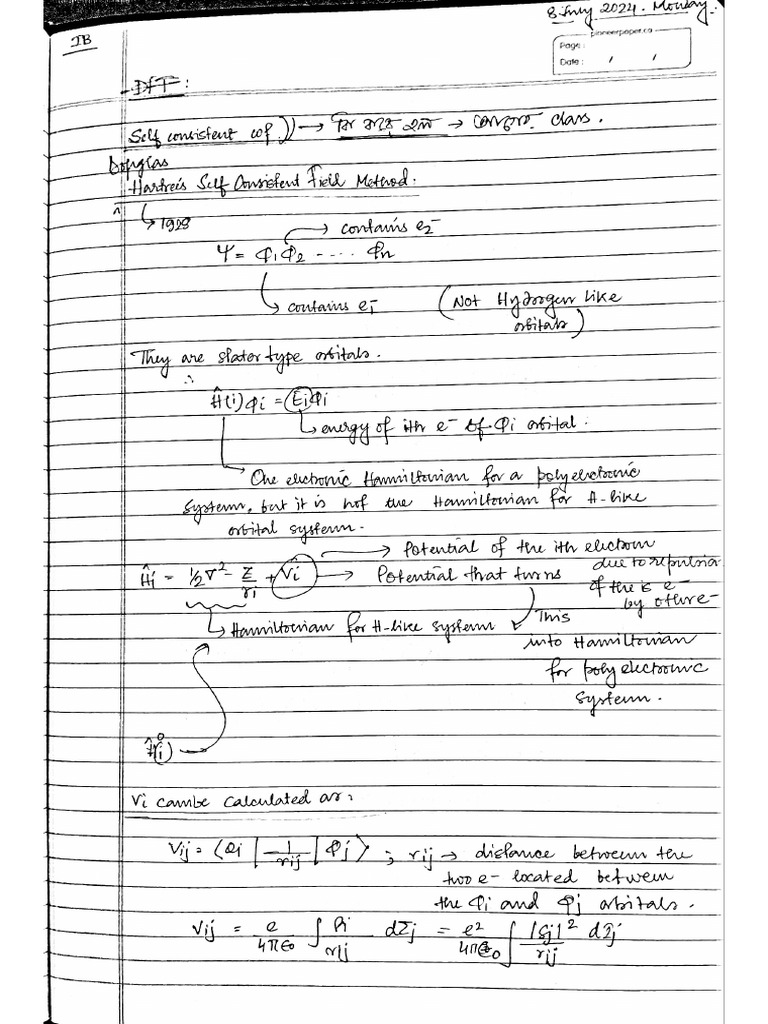 8 July 2024. Monday.
IB
pioneerpaper.co
Page:
Date: / /
DFT:
Self consistent → → class.
Douglas
Hartree's Self Consistent Field Method:
^ ↳ 1928
→ contains e2-
Ψ = φ1 φ2 ..... φn
↳ contains e1 (Not Hydrogen like
orbitals)
They are slator type orbitals.
∴ Ĥ(i) φi = Ei φi
↳ energy of ith e- of φi orbital.
One electronic Hamiltonian for a polyelectronic
system, but it is not the Hamiltonian for H-like
orbital system.
→ Potential of the ith electron
due to repulsion
of the is e-
by other e-
Ĥi = 1/2 ∇² - Z/ri + V̂i → Potential that turns
↳ Hamiltonian for H-like system This
into Hamiltonian
for polyelectronic
system.
Ĥ°(i)
Vi can be calculated as:
Vij = ⟨φi | 1/rij | φj⟩ ; rij → distance between the
two e- located between
the φi and φj orbitals.
Vij = e/4πϵ0 ∫ ρi/rij dτj = e²/4πϵ0 ∫ |Sj|²/rij dτj